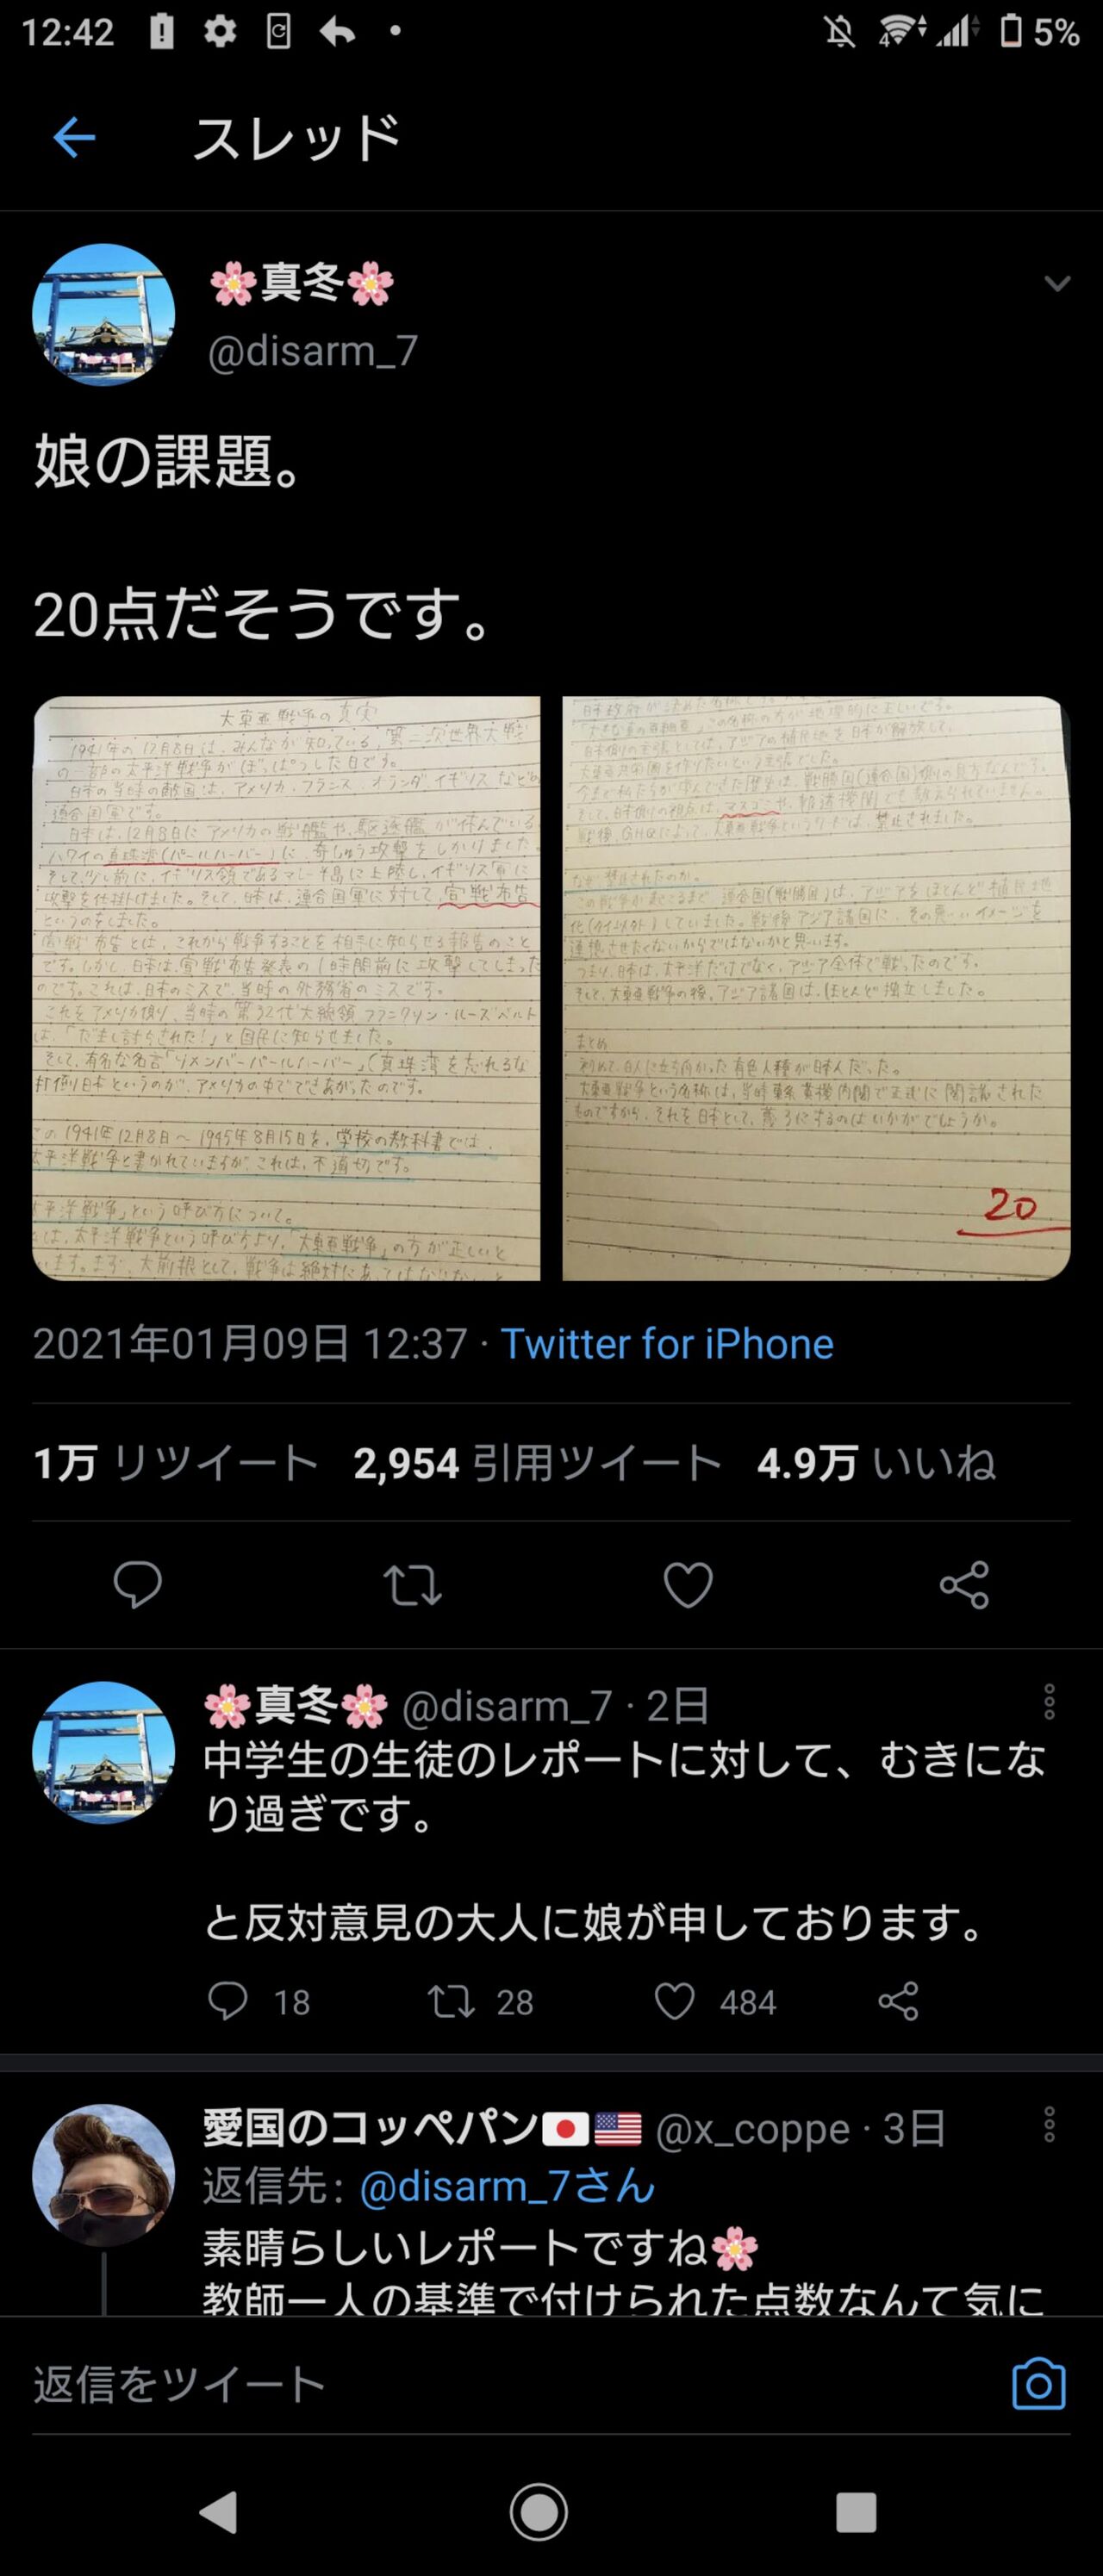 12:42
4
5%
スレッド
🌸真冬🌸
@disarm_7
娘の課題。
20点だそうです。
大東亜戦争の真実
1941年の12月8日は、みんなが知っている、第二次世界大戦
の一部の太平洋戦争がぼっぱつした日です。
日本の当時の敵国は、アメリカ、フランス、オランダ、イギリスなどの
連合国軍です。
日本は、12月8日にアメリカの戦艦や、駆逐艦が休んでいる
ハワイの真珠湾(パールハーバー)に、奇しゅう攻撃をしかけました。
そして、少し前に、イギリス領であるマレー半島に上陸し、イギリス軍に
攻撃を仕掛けました。そして、日本は、連合国軍に対して、宣戦布告
というのをしました。
宣戦布告とは、これから戦争することを相手に知らせる報告のこと
です。しかし、日本は、宣戦布告発表の1時間前に攻撃してしまった
のです。これは、日本のミスで、当時の外務省のミスです。
これをアメリカ側り、当時の第32代大統領フランクリン・ルーズベルト
は、「だまし討ちされた!」と国民に知らせました。
そして、有名な名言「リメンバーパールハーバー」(真珠湾を忘れるな
打倒日本というのが、アメリカの中でできあがったのです。
この1941年12月8日～1945年8月15日を、学校の教科書では、
太平洋戦争と書かれていますが、これは、不適切です。
太平洋戦争」という呼び方について。
は、太平洋戦争という呼び方より、「大東亜戦争」の方が正しいと
います。まず、大前提として、戦争は絶対にあってはならない、と
日本政府が決めた名称
この名称の方が地理的に正しいです。
日本側りの主張としては、アジアの植民地を日本が解放して、
大東亜共栄圏を作りたいという主張でした。
今まで私たちが学んできた歴史は、戦勝国(連合国)側りの見方なんです。
そして、日本側りの視点は、マスコミや、報道機関でも教えられていません。
戦後、GHQによって、大東亜戦争というワードは、禁止されました。
なぜ禁止されたのか。
この戦争が起こるまで、連合国(戦勝国)は、アジアをほとんど植民地
化(タイ以外)していました。戦後アジア諸国に、その悪いイメージを
連想させたくないからではないかと思います。
つまり、日本は、太平洋だけでなく、アジア全体で戦ったのです。
そして、大東亜戦争の後、アジア諸国は、ほとんど独立しました。
まとめ
初めて、白人に立ち向かった有色人種が日本人だった。
大東亜戦争という名称は、当時東条英機内閣で正式に閣議された
ものですから、それを日本として、蔑ろにするのはいかがでしょうか。
20
2021年01月09日 12:37 · Twitter for iPhone
1万 リツイート 2,954 引用ツイート 4.9万 いいね
🌸真冬🌸 @disarm_7 · 2日
中学生の生徒のレポートに対して、むきにな
り過ぎです。
と反対意見の大人に娘が申しております。
18 28 484
愛国のコッペパン🇯🇵🇺🇸 @x_coppe · 3日
返信先: @disarm_7さん
素晴らしいレポートですね🌸
教師一人の基準で付けられた点数なんて気に
返信をツイート